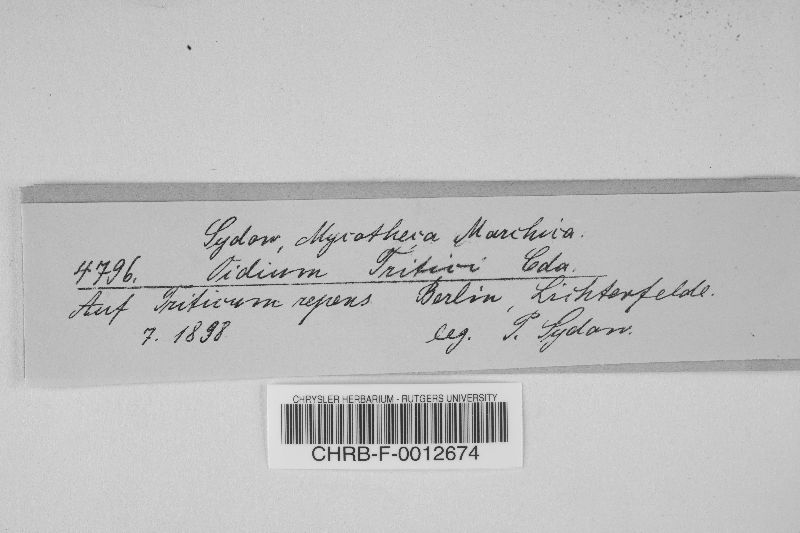 Sydow, Mycotheca Marchica.
4796. Oidium Tritici Cda.
Auf Triticum repens Berlin, Lichterfelde.
7. 1898 leg. P. Sydow.
CHRYSLER HERBARIUM - RUTGERS UNIVERSITY
CHRB-F-0012674